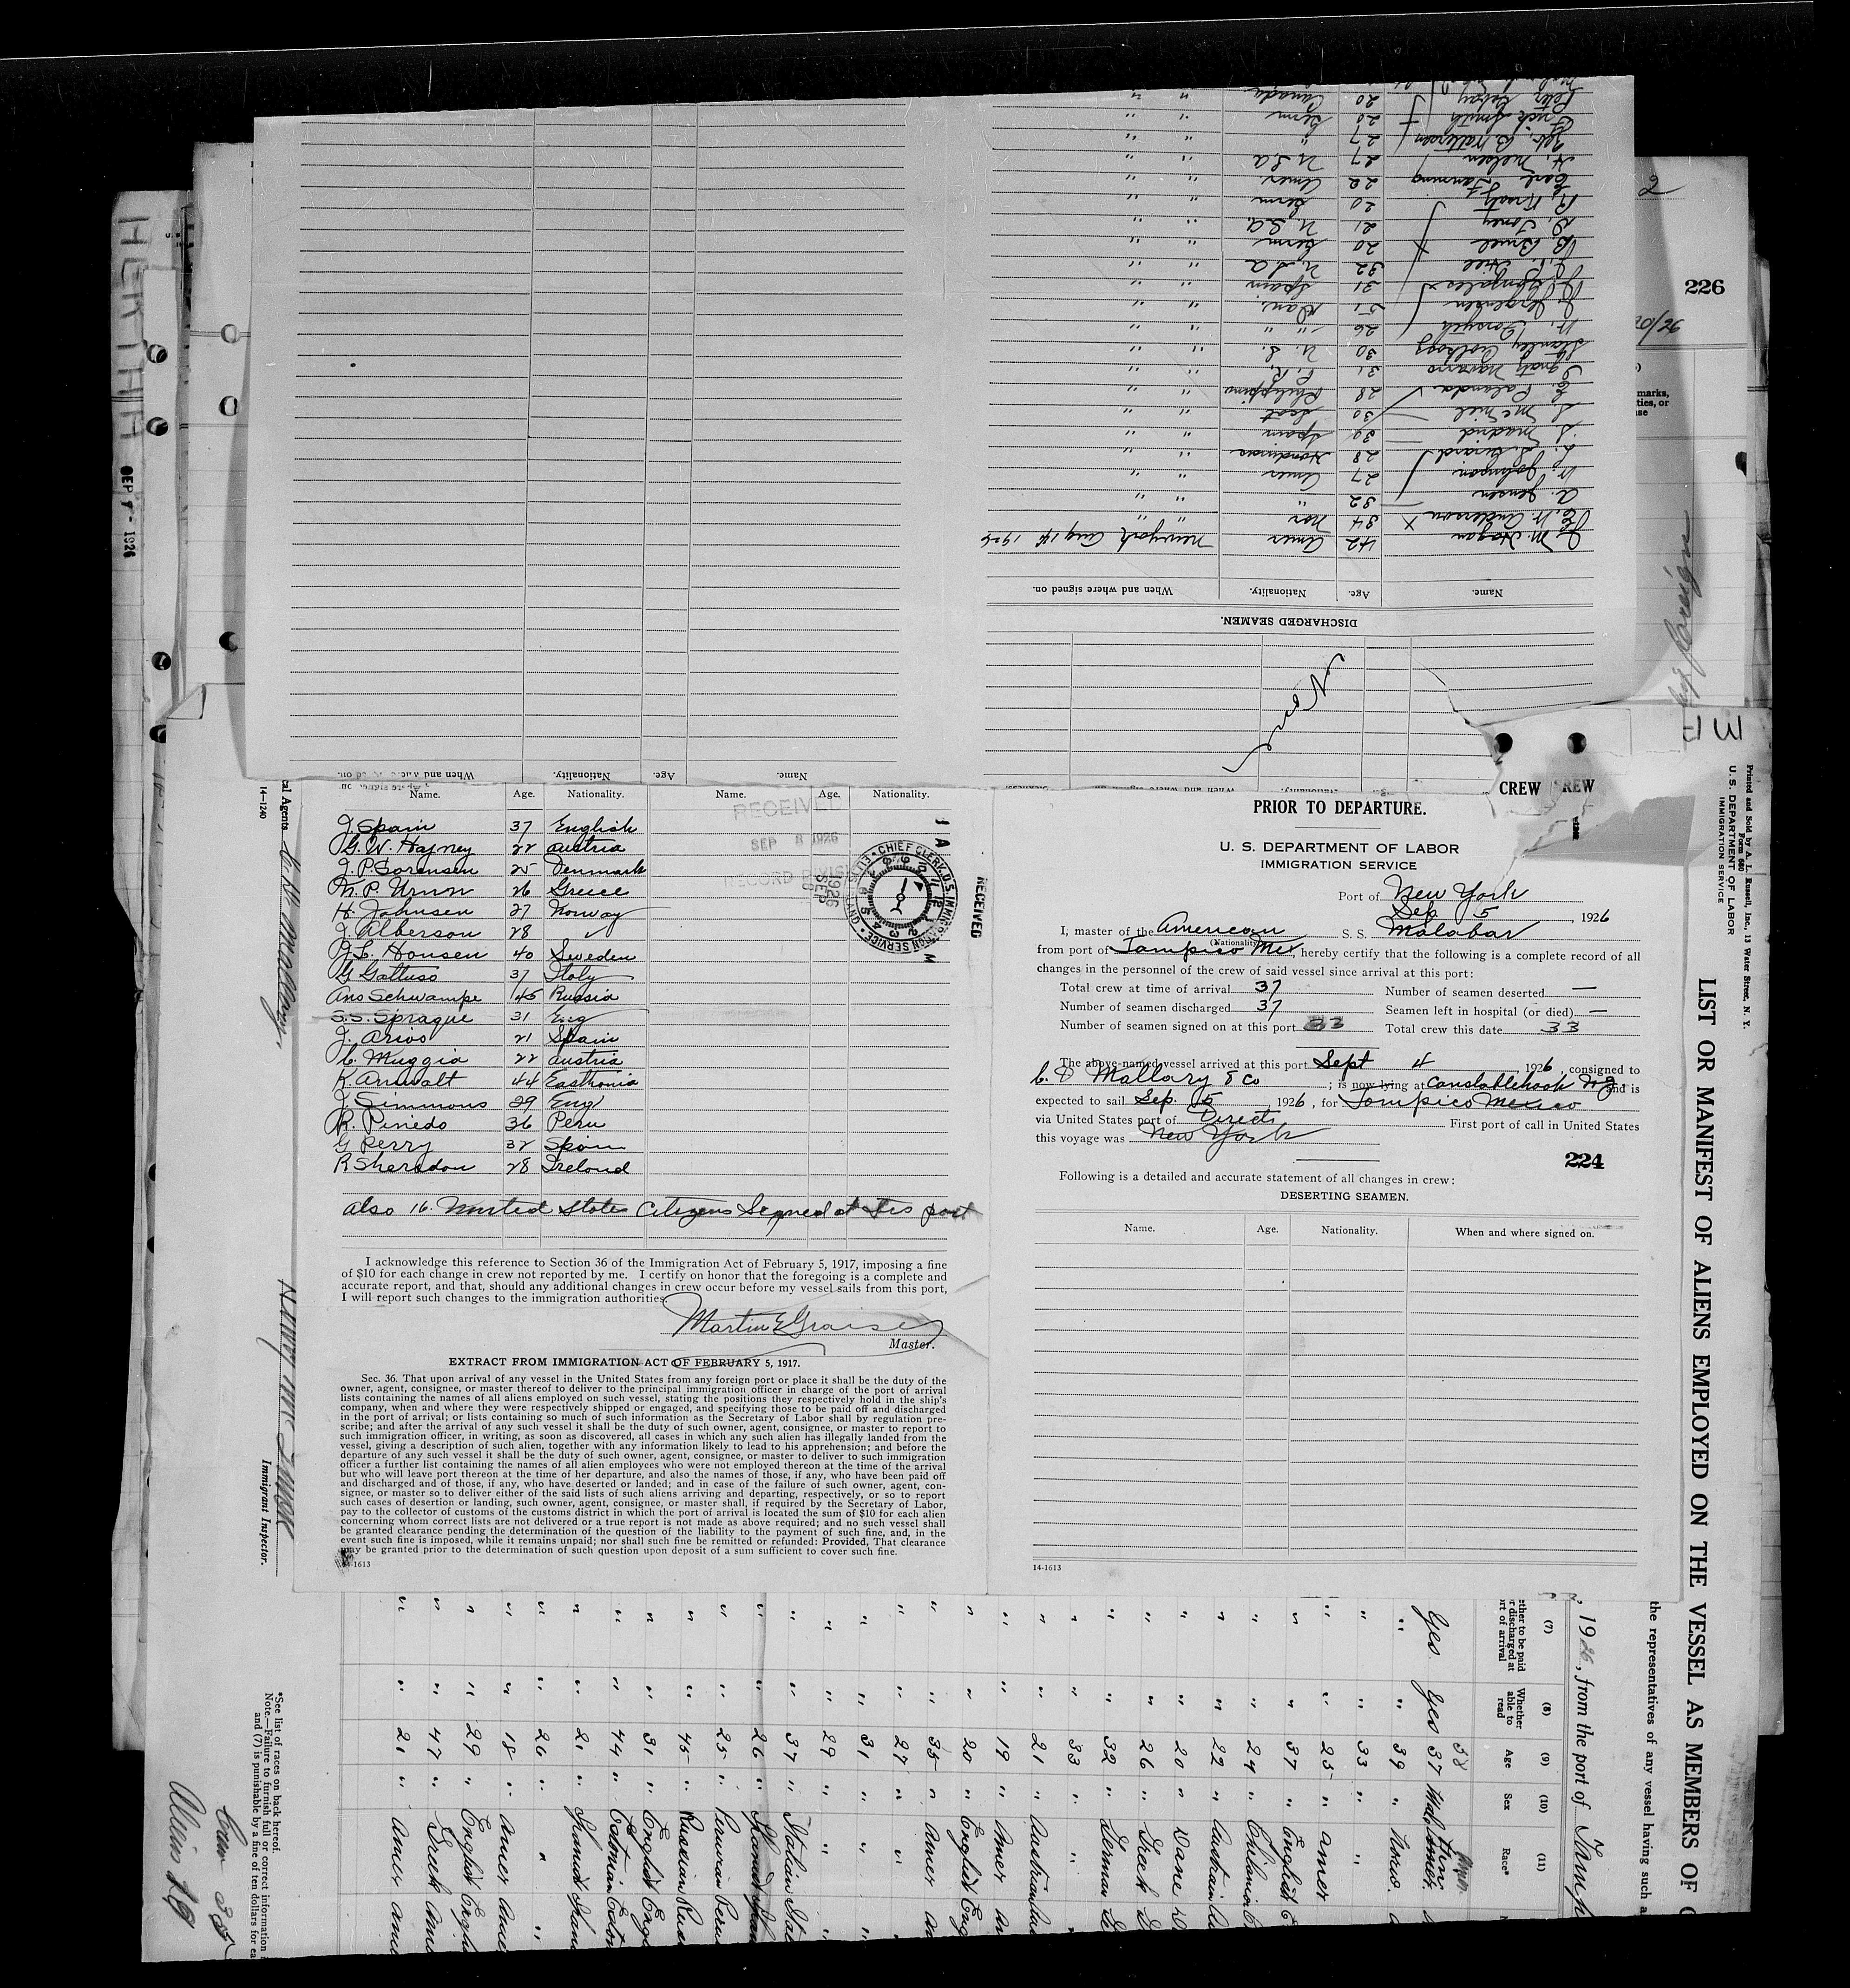 HERTHA
SEP 7 - 1926
2
226
20/26
marks,
ties, or
foreign
Name. Age. Nationality. When and where signed on.
DISCHARGED SEAMEN.
Name. Age. Nationality. When and where signed on.
J. M. Hogan 42 Amer New York Aug 14 1926
C. W. Anderson x 34 Nor " "
A. Jensen 32 " " "
Johnson 27 Amer " "
28 Honduras " "
S. Madrid 30 Spain " "
S. McNeil 30 Scot " "
E. Palanda 28 Philippine " "
Ignatz Navarro 31 P.R. " "
Stanley 30 U.S. " "
W. Forsyth 26 " " " "
J. Jorgensen 51 Dan. " "
Gonzales x 31 Spain " "
J. F. Hill 32 U.S.A " "
B. Bruel 20 Germ " "
D. Toney 21 U.S.A. " "
R. Kraatz 20 Germ " "
Earl Fanning 22 Amer " "
H. Nielsen 27 U.S.A " "
Geo. B. Patterson 27 " " "
Erich Smith 20 Germ " "
Peter 20 Canada " "
None
Name. Age. Nationality. Name. Age. Nationality.
J. Spain 37 English
G. W. Hajney 22 Austria
J. P. Sorensen 25 Denmark
26 Greece
H. Johnsen 27 Norway
J. Alberson 28 ✓
J. L. Hansen 40 Sweden
G Gattuso 37 Italy
Ans Schwampe 45 Russia
S.S. Sprague 31 Eng
J. Arios 21 Spain
C. Muggia 22 Austria
K. Annvalt 44 Easthonia
J. Simmons 29 Eng
R. Pinedo 36 Peru
G Perry 32 Spain
R Sheradon 28 Ireland
also 16. United States Citizens Signed at this port
RECEIVED
SEP 8 1926
RECORD DIVISION
CHIEF CLERK, U.S. IMMIGRATION SERVICE • ELLIS ISLAND
1926 SEP
RECEIVED
I acknowledge this reference to Section 36 of the Immigration Act of February 5, 1917, imposing a fine
of $10 for each change in crew not reported by me. I certify on honor that the foregoing is a complete and
accurate report, and that, should any additional changes in crew occur before my vessel sails from this port,
I will report such changes to the immigration authorities.
Master.
EXTRACT FROM IMMIGRATION ACT OF FEBRUARY 5, 1917.
Sec. 36. That upon arrival of any vessel in the United States from any foreign port or place it shall be the duty of the
owner, agent, consignee, or master thereof to deliver to the principal immigration officer in charge of the port of arrival
lists containing the names of all aliens employed on such vessel, stating the positions they respectively hold in the ship's
company, when and where they were respectively shipped or engaged, and specifying those to be paid off and discharged
in the port of arrival; or lists containing so much of such information as the Secretary of Labor shall by regulation pre-
scribe; and after the arrival of any such vessel it shall be the duty of such owner, agent, consignee, or master to report to
such immigration officer, in writing, as soon as discovered, all cases in which any such alien has illegally landed from the
vessel, giving a description of such alien, together with any information likely to lead to his apprehension; and before the
departure of any such vessel it shall be the duty of such owner, agent, consignee, or master to deliver to such immigration
officer a further list containing the names of all alien employees who were not employed thereon at the time of the arrival
but who will leave port thereon at the time of her departure, and also the names of those, if any, who have been paid off
and discharged and of those, if any, who have deserted or landed; and in case of the failure of such owner, agent, con-
signee, or master so to deliver either of the said lists of such aliens arriving and departing, respectively, or so to report
such cases of desertion or landing, such owner, agent, consignee, or master shall, if required by the Secretary of Labor,
pay to the collector of customs of the customs district in which the port of arrival is located the sum of $10 for each alien
concerning whom correct lists are not delivered or a true report is not made as above required; and no such vessel shall
be granted clearance pending the determination of the question of the liability to the payment of such fine, and, in the
event such fine is imposed, while it remains unpaid; nor shall such fine be remitted or refunded: Provided, That clearance
may be granted prior to the determination of such question upon deposit of a sum sufficient to cover such fine.
14-1613
CREW CREW
PRIOR TO DEPARTURE.
U. S. DEPARTMENT OF LABOR
IMMIGRATION SERVICE
Port of New York
Sep 5, 1926
I, master of the American S. S. Malabar
(Nationality)
from port of Tampico Mex, hereby certify that the following is a complete record of all
changes in the personnel of the crew of said vessel since arrival at this port:
Total crew at time of arrival 37 Number of seamen deserted —
Number of seamen discharged 37 Seamen left in hospital (or died) —
Number of seamen signed on at this port 33 Total crew this date 33
The above-named vessel arrived at this port Sept 4, 1926, consigned to
C. D Mallary & Co; is now lying at Constablehook NJ and is
expected to sail Sep. 5, 1926, for Tampico Mexico
via United States port of Direct First port of call in United States
this voyage was New York
224
Following is a detailed and accurate statement of all changes in crew:
DESERTING SEAMEN.
Name. Age. Nationality. When and where signed on.
14-1613
Printed and Sold by A. L. Russell, Inc., 13 Water Street, N. Y.
Form 680
U. S. DEPARTMENT OF LABOR
IMMIGRATION SERVICE
LIST OR MANIFEST OF ALIENS EMPLOYED ON THE VESSEL AS MEMBERS OF C
the representatives of any vessel having such a
, 1926, from the port of Tamp
(7) (8) (9) (10) (11)
ether to be paid
r discharged at
rt of arrival
Whether able to read
Age
Sex
Race*
38
Yes Yes 37 Male
" " 39 " Norw.
" " 33 " "
" " 25 " Amer
" " 37 " English
" " 24 " Chilian
" " 22 " Austrian
" " 20 " Dane
" " 26 " Greek
" " 32 " German
" " 33 " "
" " 21 " Austrian
" " 19 " Amer
" " 20 " English
" " 35 " Amer
" " 27 " "
" " 31 " "
" " 29 " "
" " 37 " Italian
" " 26 "
" " 25 " Peruvian
" " 45 " Russian
" " 31 " English
" " 44 " Estonian
" " 21 " Spanish
" " 26 " "
" " 18 " Amer
" " 29 " English
" " 47 " Greek
" " 21 " Amer
cal Agents C. D. Mallory,
14-1240
Immigrant Inspector.
*See list of races on back hereof.
Note.—Failure to furnish full or correct information
and (7) is punishable by a fine of ten dollars for ea
Crew 35
Alien 19